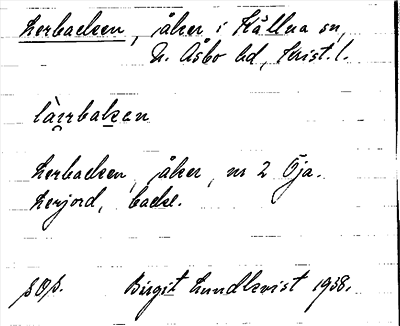 Lerbacken, åker i Källna sn,
N. Åsbo hd, Krist. l.
làrrbakan
Lerbacken, åker, nr 2 Öja.
Lerjord, backe.
Birgit Lundkvist 1938.